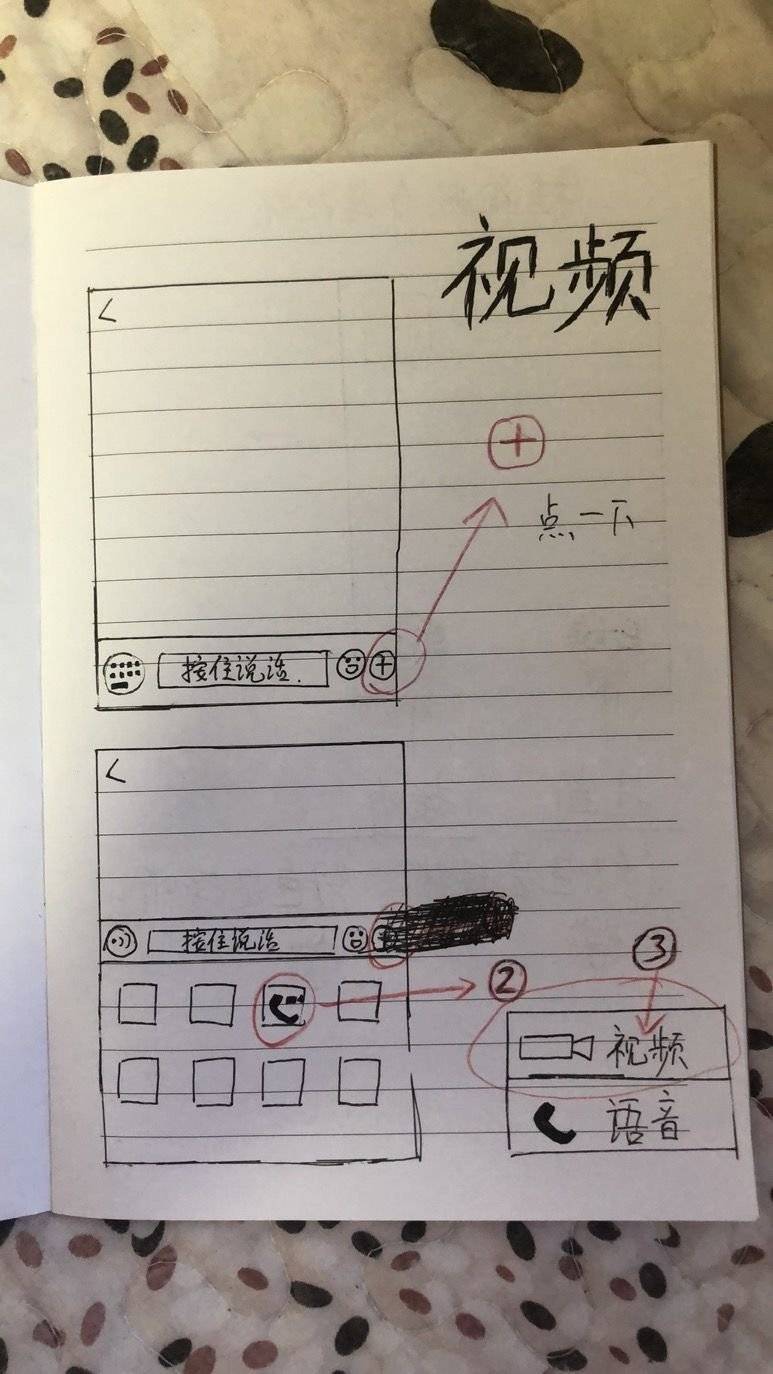 视频
点一下
按住说话.
按住说话
②
③
视频
语音